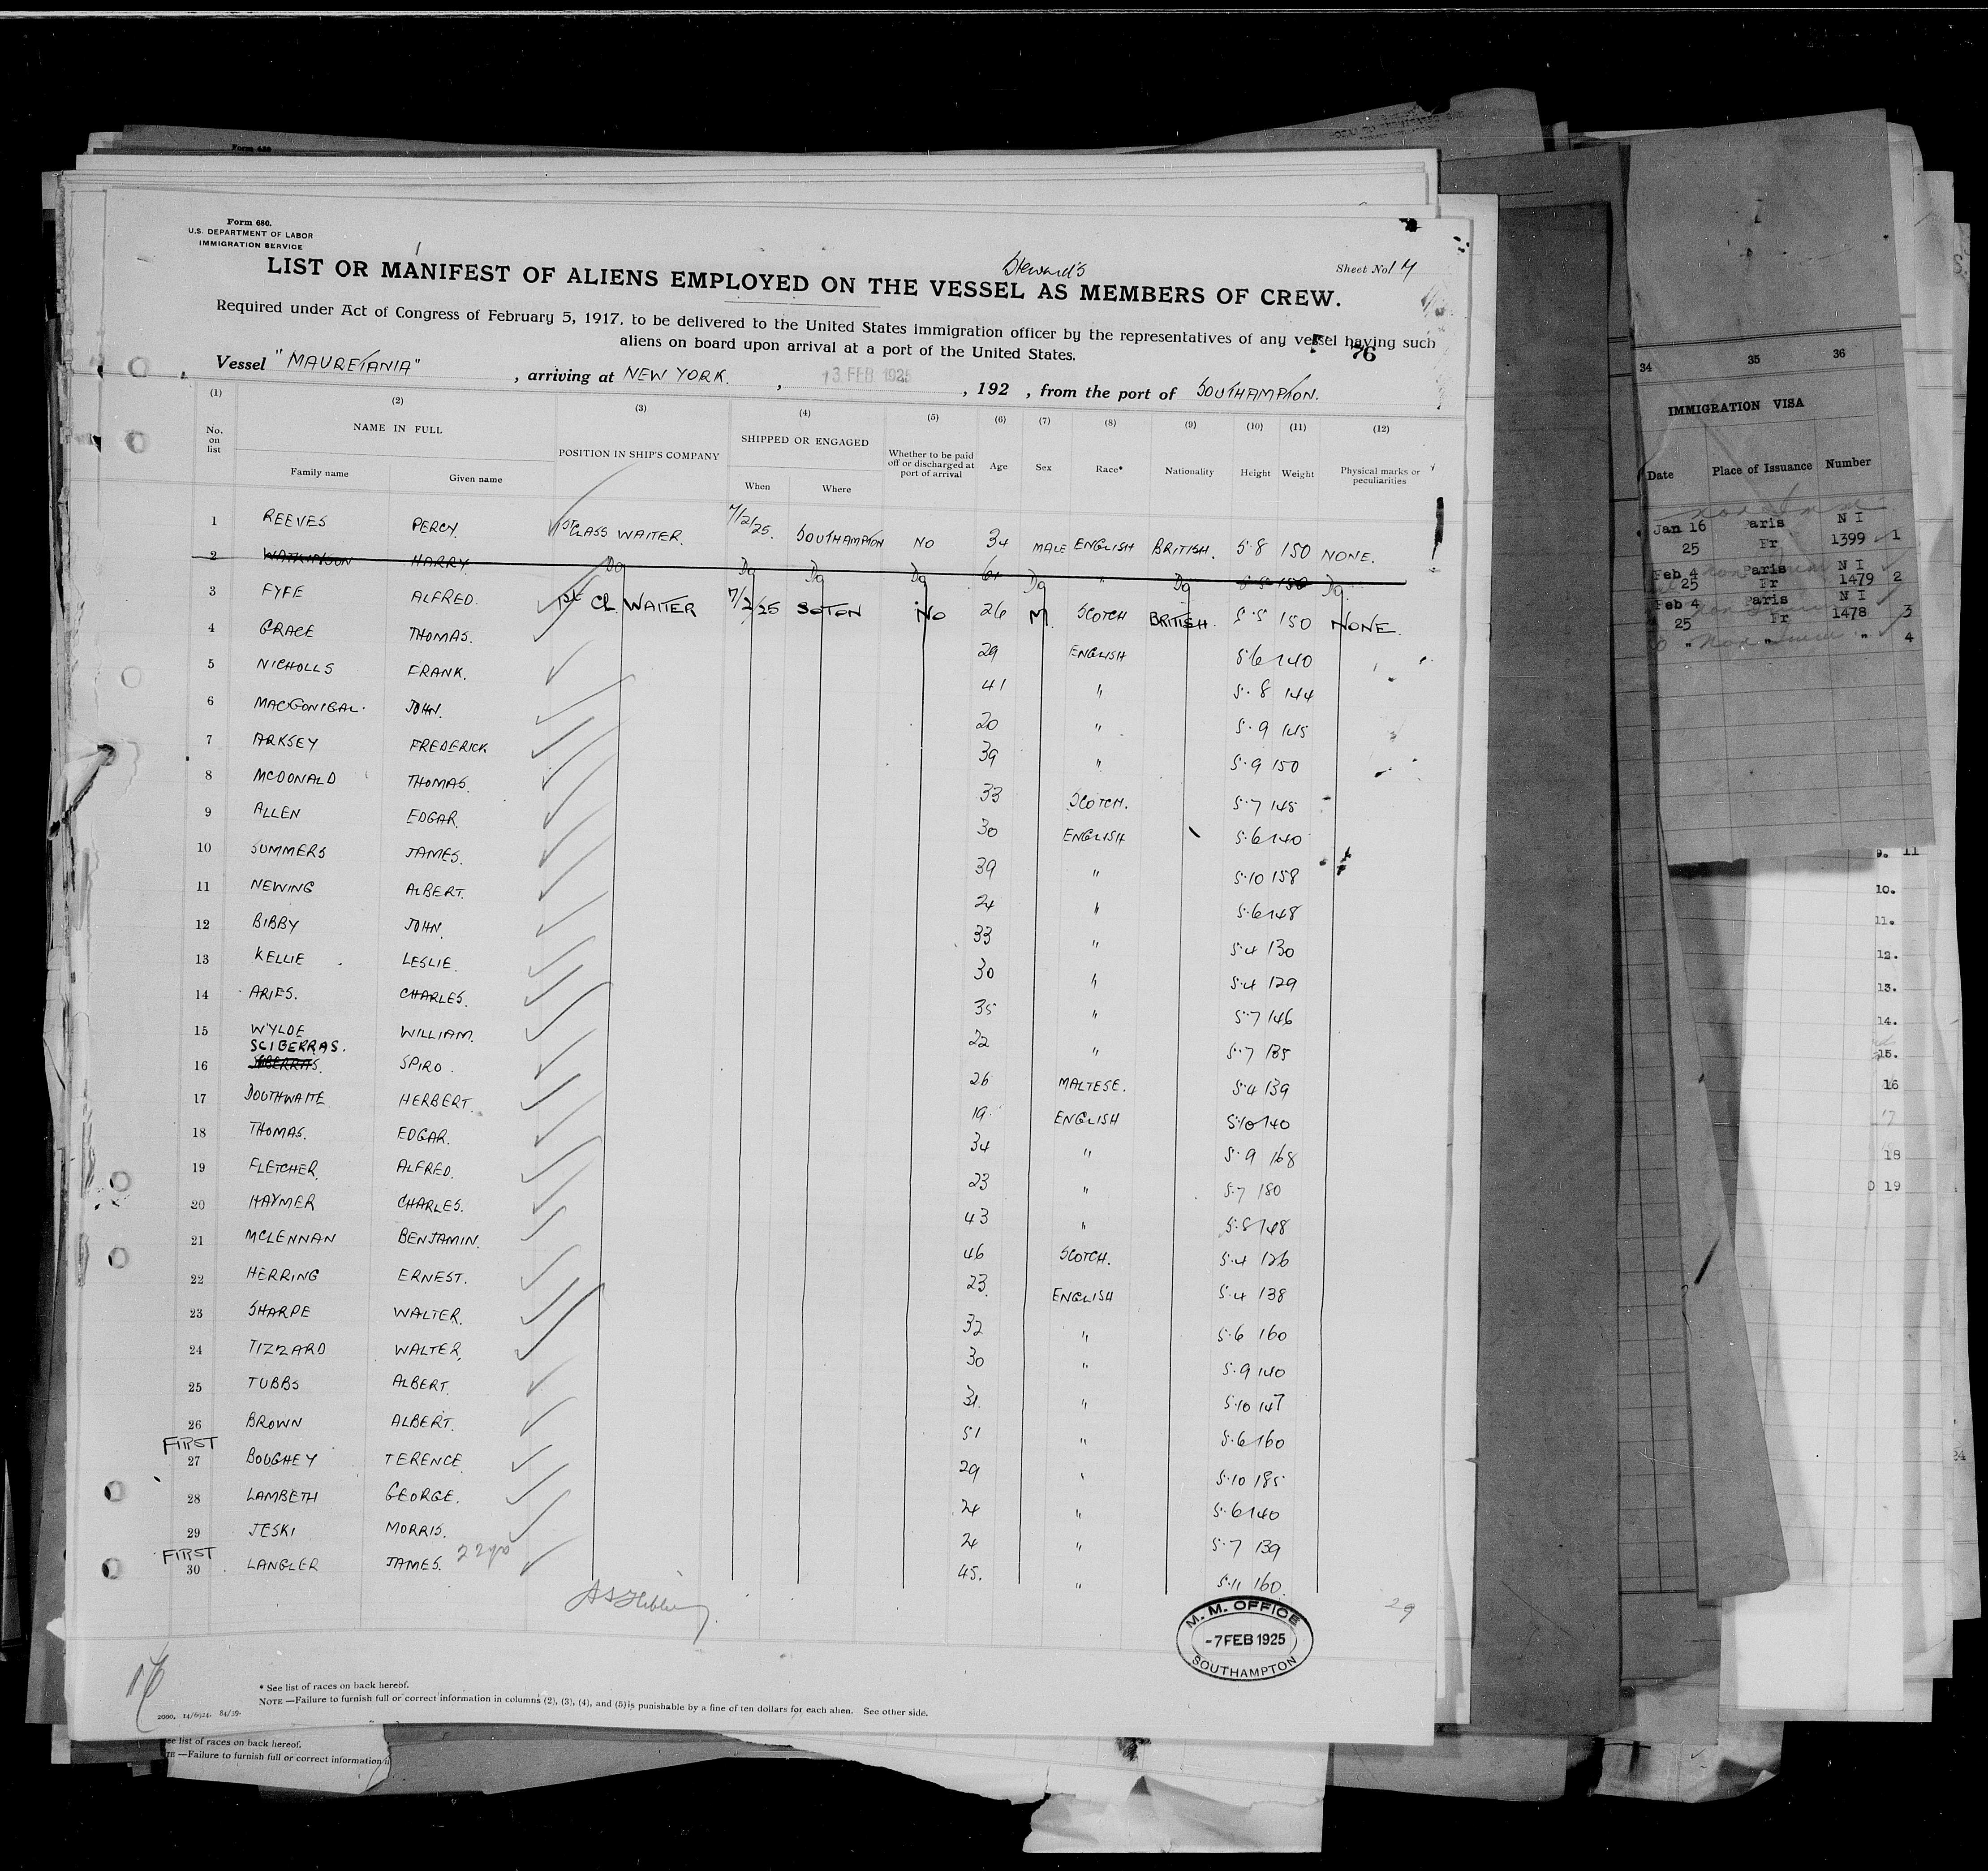 Form 680.
U.S. DEPARTMENT OF LABOR
IMMIGRATION SERVICE
Steward's
Sheet No 14
LIST OR MANIFEST OF ALIENS EMPLOYED ON THE VESSEL AS MEMBERS OF CREW.
Required under Act of Congress of February 5, 1917, to be delivered to the United States immigration officer by the representatives of any vessel having such
aliens on board upon arrival at a port of the United States.
76
Vessel "MAURETANIA", arriving at NEW YORK., 13 FEB 1925, 192 , from the port of SOUTHAMPTON.
(1) (2) (3) (4) (5) (6) (7) (8) (9) (10) (11) (12)
No. on list NAME IN FULL POSITION IN SHIP'S COMPANY SHIPPED OR ENGAGED Whether to be paid off or discharged at port of arrival Age Sex Race* Nationality Height Weight Physical marks or peculiarities
Family name Given name When Where
1 REEVES PERCY. 1ST CLASS WAITER. 7/2/25. SOUTHAMPTON NO 34 MALE ENGLISH BRITISH. 5.8 150 NONE.
2 WATKINSON HARRY. Do Do Do Do 61 Do " Do 5.5 150 Do.
3 FYFE ALFRED. 1st CL. WAITER 7/2/25 SOTON NO 26 M. SCOTCH BRITISH. 5.5 150 NONE.
4 GRACE THOMAS. 29 ENGLISH 5.6 140
5 NICHOLLS FRANK. 41 " 5.8 144
6 MACGONIGAL. JOHN. 20 " 5.9 145
7 ARKSEY FREDERICK 39 " 5.9 150
8 MCDONALD THOMAS. 33 SCOTCH. 5.7 148
9 ALLEN EDGAR. 30 ENGLISH 5.6 140
10 SUMMERS JAMES. 39 " 5.10 158
11 NEWING ALBERT. 24 " 5.6 148
12 BIBBY JOHN. 33 " 5.4 130
13 KELLIE LESLIE. 30 " 5.4 129
14 ARIES. CHARLES. 35 " 5.7 146
15 WYLDE WILLIAM. 22 " 5.7 135
SCIBERRAS.
16 SPIRO. 26 MALTESE. 5.4 139
17 DOUTHWAITE HERBERT. 19. ENGLISH 5.10 140
18 THOMAS. EDGAR. 34 " 5.9 168
19 FLETCHER. ALFRED. 23 " 5.7 180
20 HAYMER CHARLES. 43 " 5.8 148
21 MCLENNAN BENJAMIN. 46 SCOTCH. 5.4 126
22 HERRING ERNEST. 23. ENGLISH 5.4 138
23 SHARPE WALTER. 32 " 5.6 160
24 TIZZARD WALTER. 30 " 5.9 140
25 TUBBS ALBERT. 31. " 5.10 147
26 BROWN ALBERT. 51 " 5.6 160
FIRST
27 BOUGHEY TERENCE 29 " 5.10 185
28 LAMBETH GEORGE. 24 " 5.6 140
29 JESKI MORRIS. 24 " 5.7 139
FIRST
30 LANGLER JAMES. 45. " 5.11 160.
29
M. M. OFFICE
-7 FEB 1925
SOUTHAMPTON
* See list of races on back hereof.
NOTE —Failure to furnish full or correct information in columns (2), (3), (4), and (5) is punishable by a fine of ten dollars for each alien. See other side.
ee list of races on back hereof.
TE —Failure to furnish full or correct information
34 35 36
IMMIGRATION VISA
Date Place of Issuance Number
Jan 16 Paris N I
25 Fr 1399 1
Feb 4 Paris N I
25 Fr 1479 2
Feb 4 Paris N I
25 Fr 1478 3
" " 4
9. 11
10.
11.
12.
13.
14.
15.
16
17
18
19